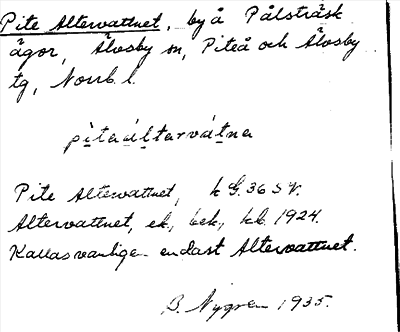 Pite Altervattnet, by å Pålsträsk
ägor, Älvsby sn, Piteå och Älvsby
tg, Norrb. l.
pìtaáltarvátna
Pite Altervattnet, h G. 36 SV.
Altervattnet, ek, bek, hb. 1924.
Kallas vanligen endast Altervattnet.
B. Nygren 1935.